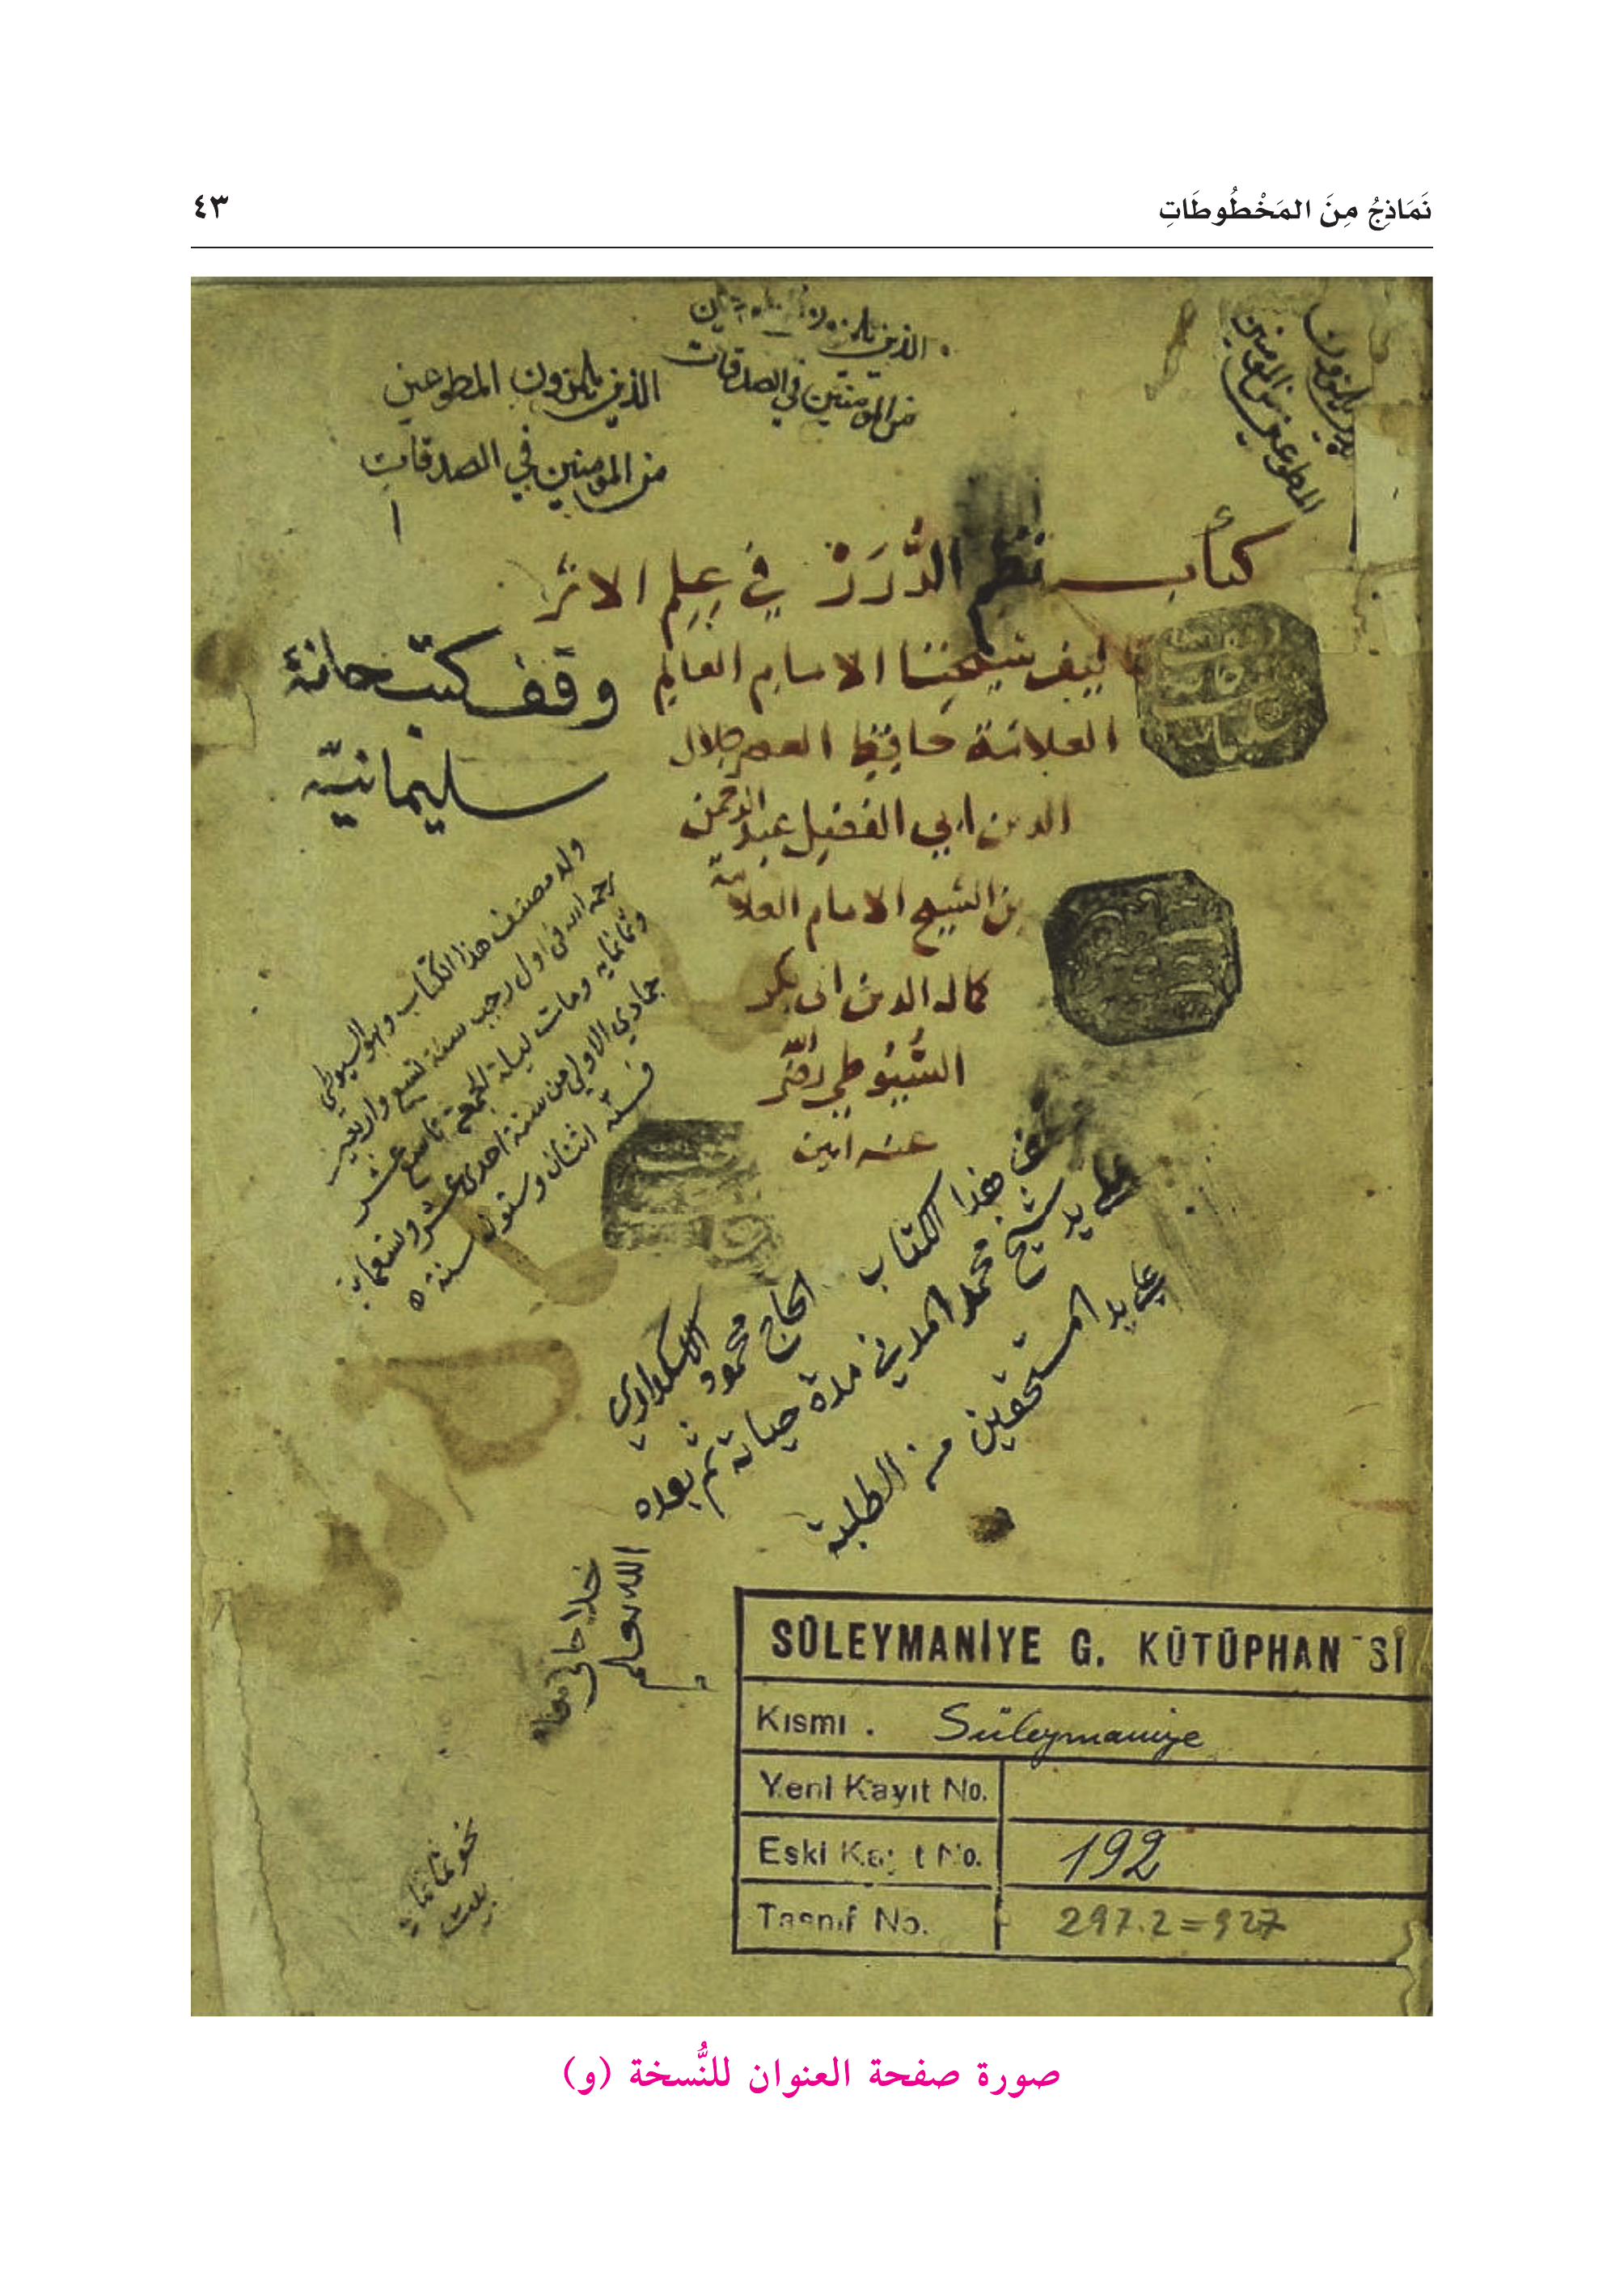 نَمَاذِجُ مِنَ المَخْطُوطَاتِ
٤٣
الذين
من المومنين في الصدقات
الذين يلمزون المطوعين
من المومنين في الصدقات
يلمزون
المطوعين من المومنين
كتاب نظم الدُّرَرْ في عِلم الاثر
تاليف شيخنا الامام العالم
العلامة حافظ العصر جلال
الدين ابي الفضل عبد الرحمن
بن الشيخ الامام العلامة
كمال الدين ابي بكر
السُّيُوطي رضي الله
عنه امين
وقف كتبخانهٔ
سليمانيّه
ولد مصنف هذا الكتاب وهو السيوطي
رحمه الله في اول رجب سنة تسع واربعين
وثمانمايه ومات ليلة الجمعة تاسع عشر
جمادي الاولي من سنة احدى عشر وتسعماية
فسنّه اثنان وستون سنة
هذا الكتاب الحاج محمود الاسكداري
على يد شيخ محمد المدني مدة حياته ثم بعده
علي يد المستحقين من الطلبة
الله يعلم
SÜLEYMANİYE G. KÜTÜPHAN Sİ
Kısmı . Süleymaniye
Yeni Kayıt No.
Eski Kayıt No. 192
Tasnif No. 297.2=927
صورة صفحة العنوان للنُّسخة (و)